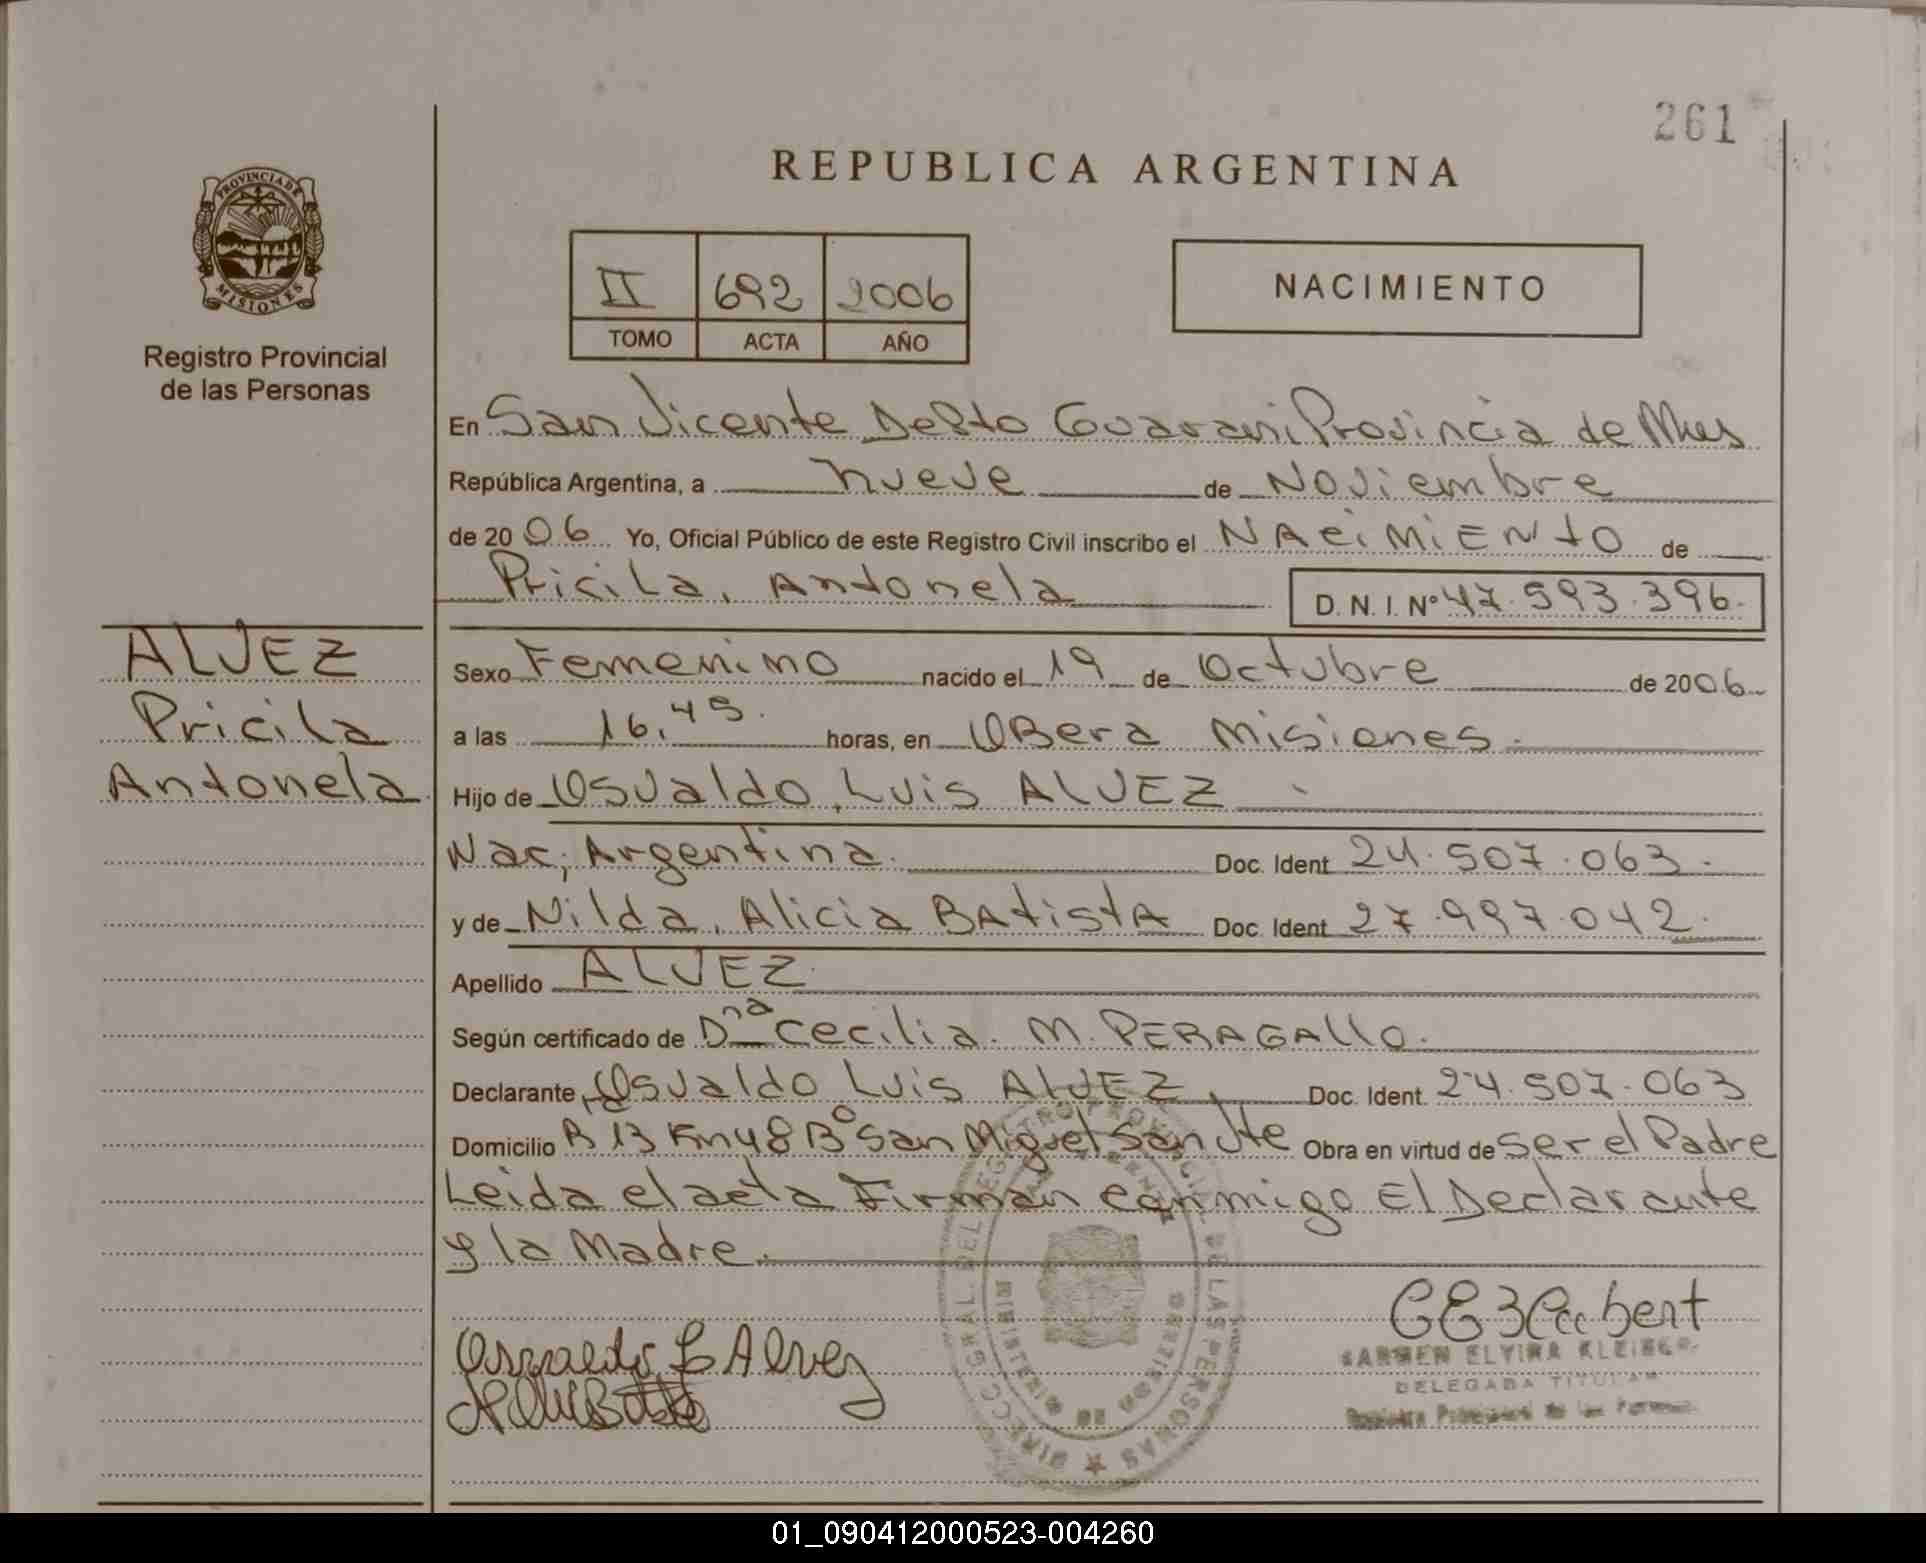 261
REPUBLICA ARGENTINA
PROVINCIA DE
MISIONES
Registro Provincial
de las Personas
II 692 2006
TOMO ACTA AÑO
NACIMIENTO
En San Vicente Depto Guarani Provincia de Mnes
República Argentina, a nueve de Noviembre
de 2006 Yo, Oficial Público de este Registro Civil inscribo el NAciMiENtO de
Pricila, Antonela D.N.I. Nº 47.593.396.
ALVEZ
Pricila
Antonela
Sexo Femenino nacido el 19 de Octubre de 2006
a las 16,45. horas, en Obera Misiones.
Hijo de Osvaldo, Luis ALVEZ
Nac; Argentina. Doc. Ident 24.507.063.
y de Nilda, Alicia BAtistA Doc. Ident 27.997.042.
Apellido ALVEZ
Según certificado de Dña Cecilia. M. PERAGAllO.
Declarante Osvaldo Luis AlVEZ, Doc. Ident. 24.507.063
Domicilio R 13 Km 48 Bº San Miguel San Vte Obra en virtud de ser el Padre
Leida el acta Firman conmigo El Declarante
y la Madre.
Osvaldo L Alvez
CARMEN ELVIRA
DELEGADA TITULAR
Registro Provincial de las Personas
01_090412000523-004260